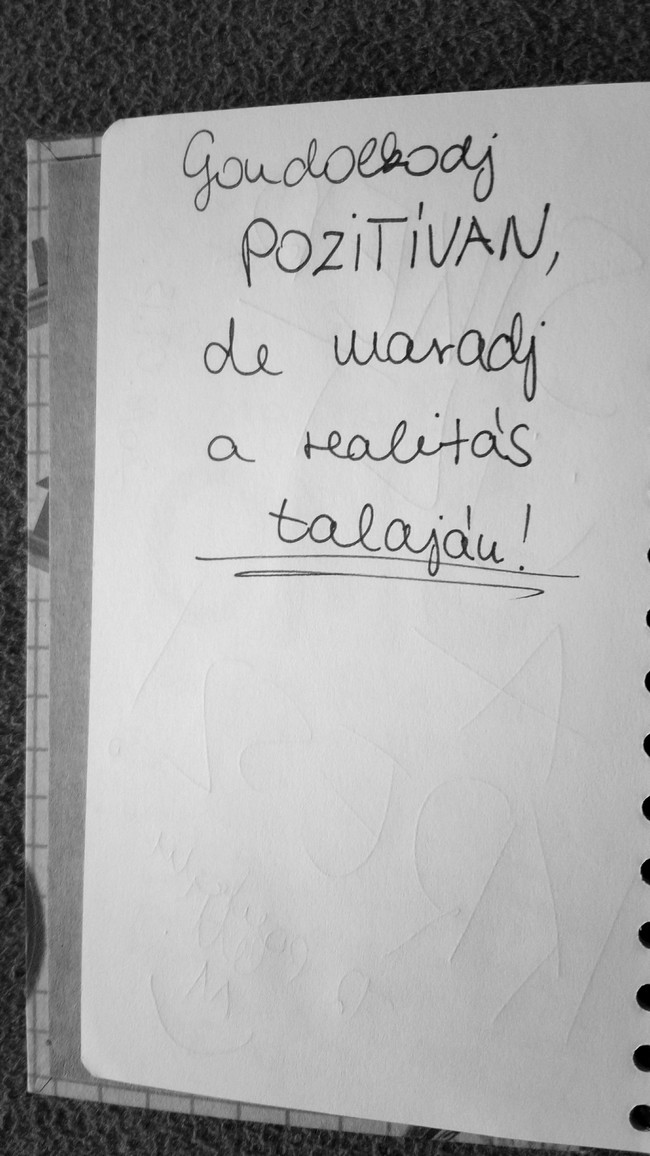 Gondolkodj
POZITÍVAN,
de maradj
a realitás
talaján!